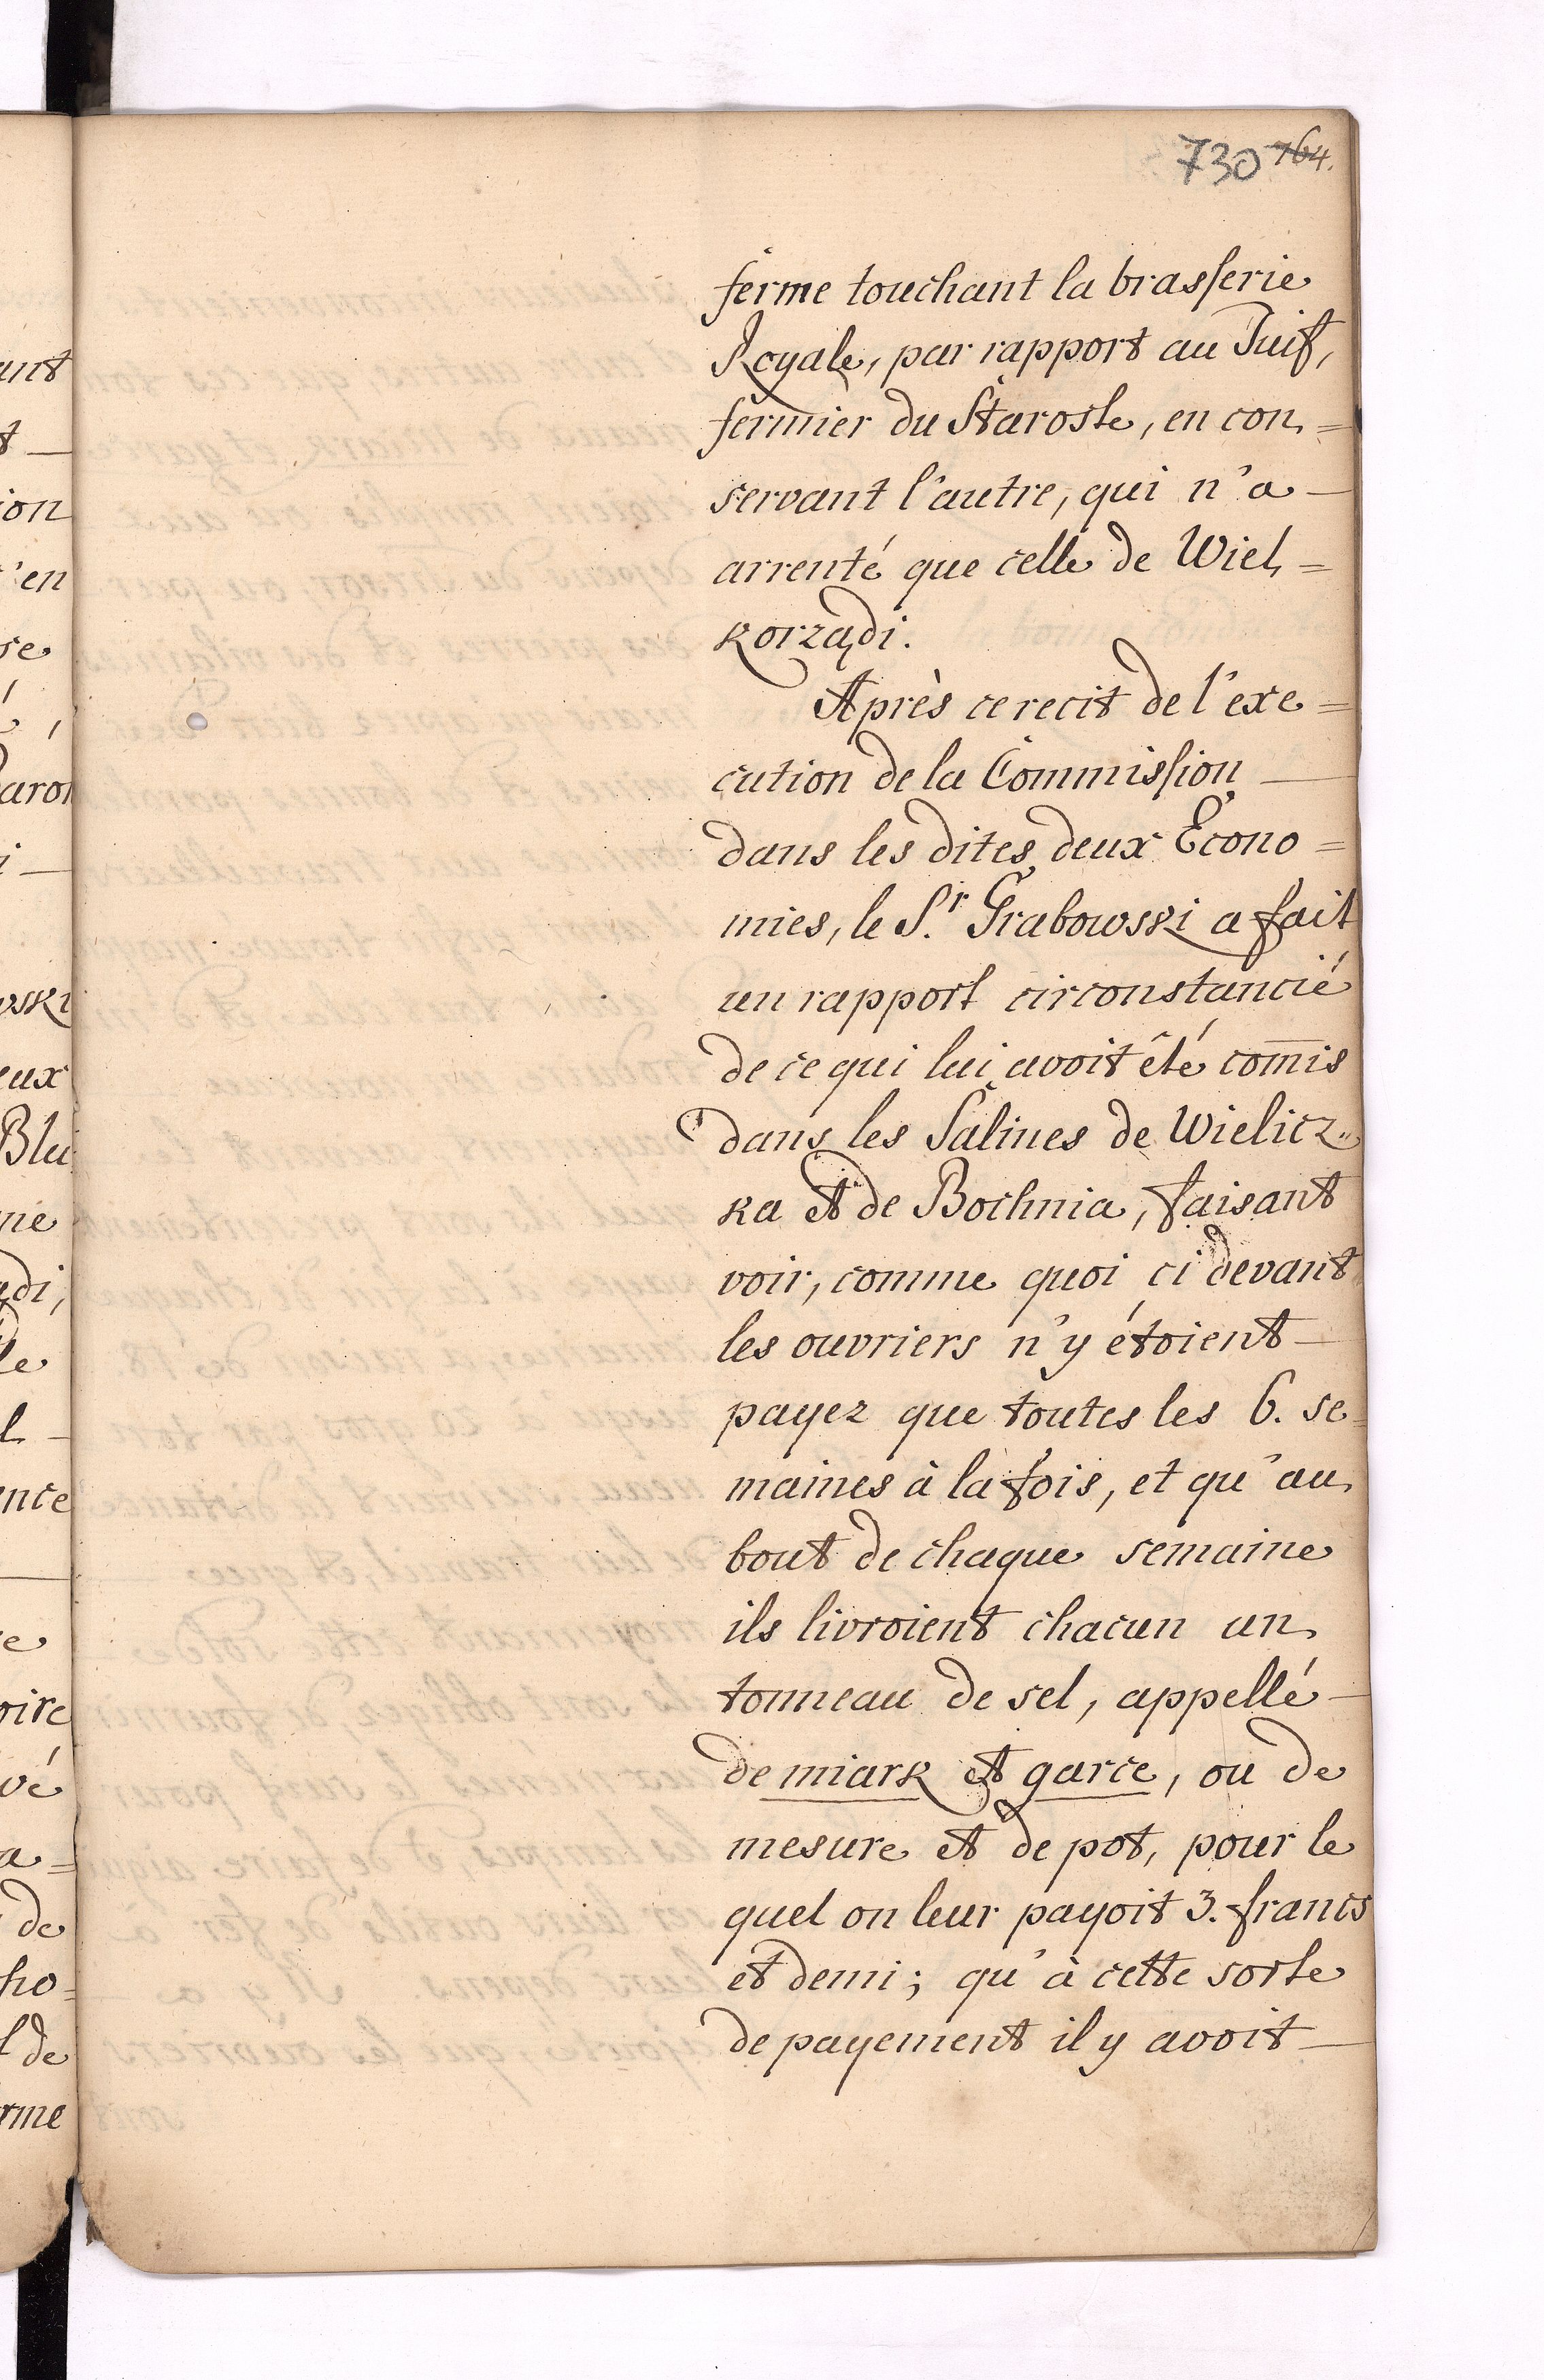 730 764.
ferme touchant la brasserie
Royale, par rapport au Juif,
fermier du Staroste, en con=
servant l'autre, qui n'a —
arrenté que celle de Wiel=
korządi.
Après ce recit de l'exe=
cution de la Commission —
dans les dites deux Econo=
mies, le S.r Grabowski a fait
un rapport circonstancié
de ce qui lui avoit été com̄is
dans les Salines de Wielicz=
ka et de Bochnia, faisant
voir, comme quoi ci devant
les ouvriers n'y étoient —
payez que toutes les 6. se=
maines à la fois, et qu'au
bout de chaque semaine
ils livroient chacun un
tonneau de sel, appellé —
de miark et garce, ou de
mesure et de pot, pour le
quel on leur payoit 3. francs
et demi; qu'à cette sorte
de payement il y avoit —